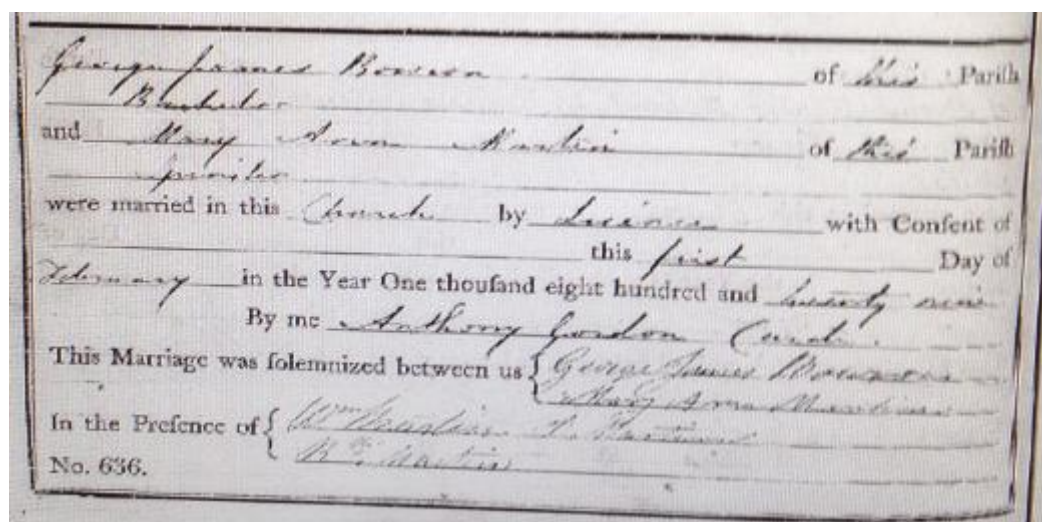 George James Bowson of this Pariſh
Bachelor
and Mary Ann Martin of this Pariſh
Spinster
were married in this Church by Licence with Conſent of
this first Day of
February in the Year One thouſand eight hundred and twenty nine
By me Anthony Gordon Curate
This Marriage was ſolemnized between us George James
Mary Ann Martin
In the Preſence of Wm Martin
Martin
No. 636.